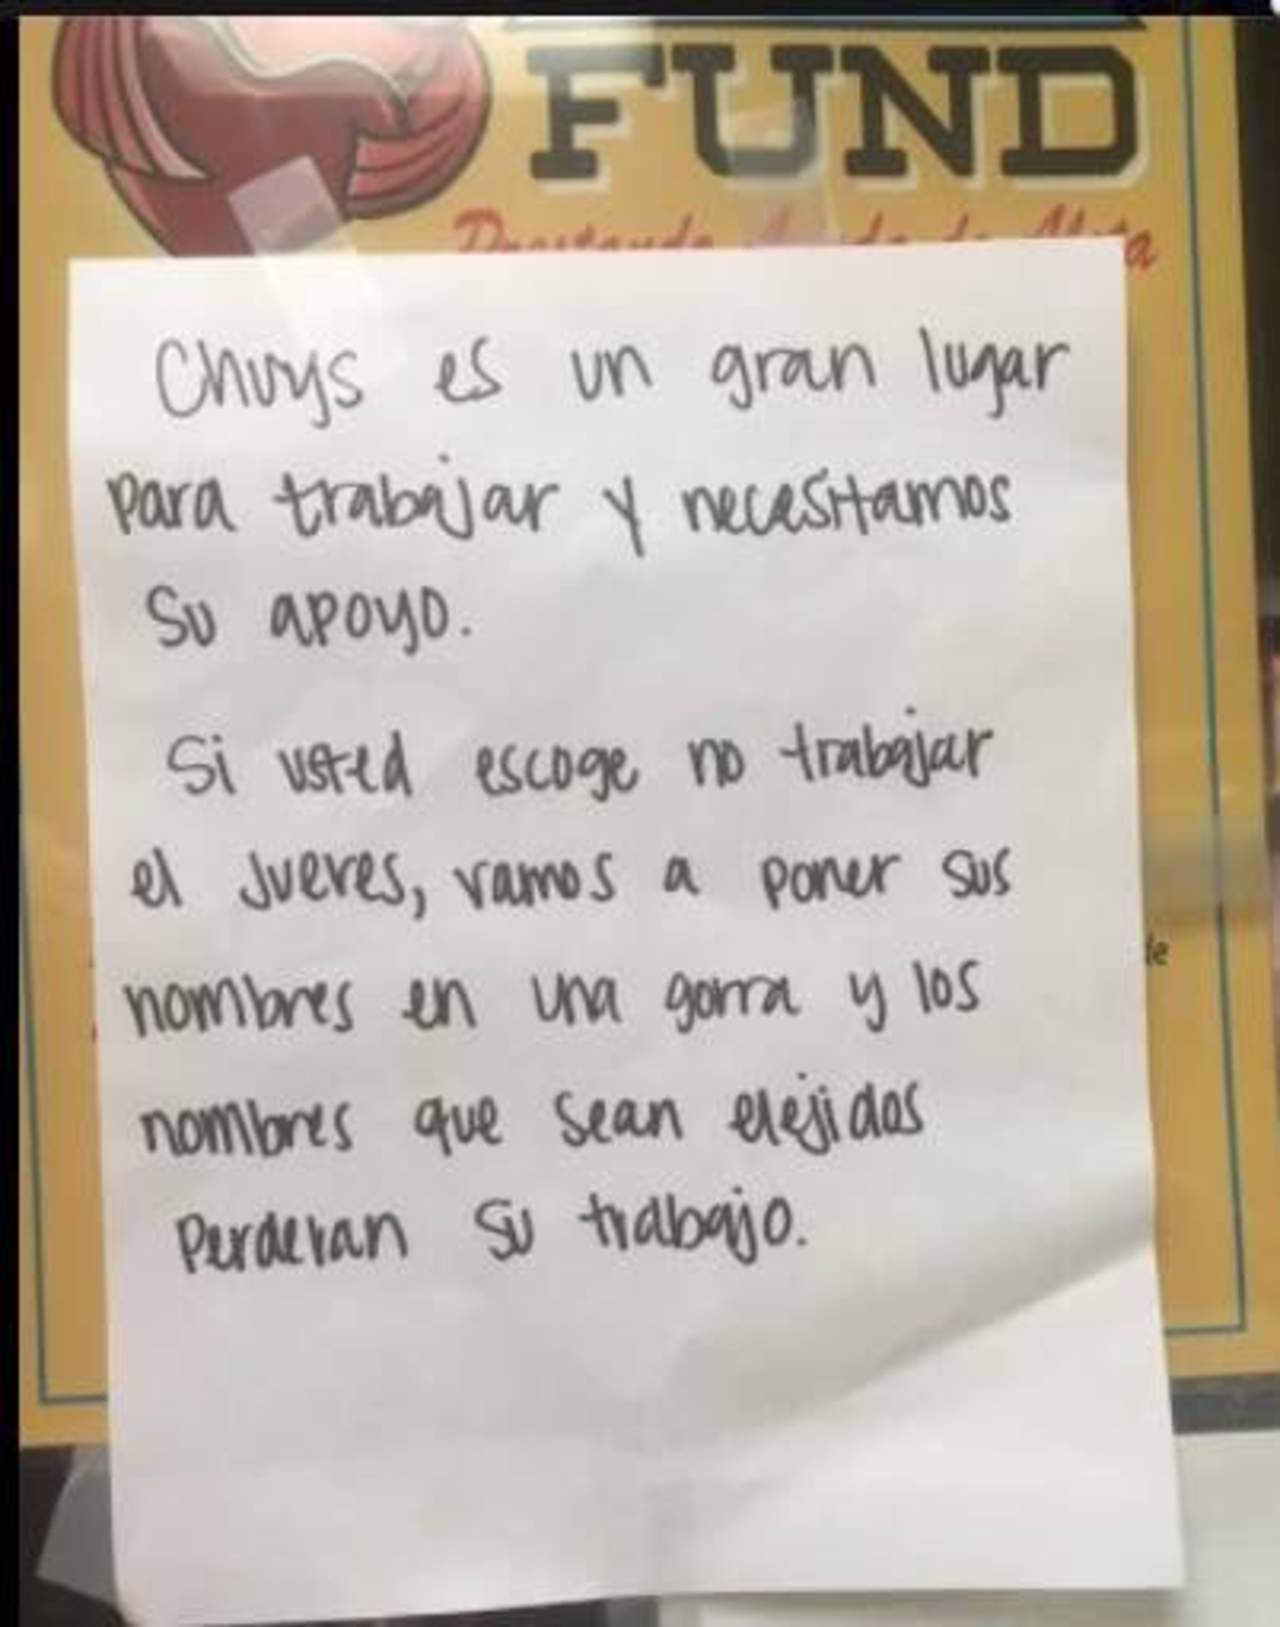 FUND
Chuys es un gran lugar
para trabajar y necesitamos
su apoyo.
Si usted escoge no trabajar
el Jueves, vamos a poner sus
nombres en una gorra y los
nombres que sean elejidos
Perderan su trabajo.
de